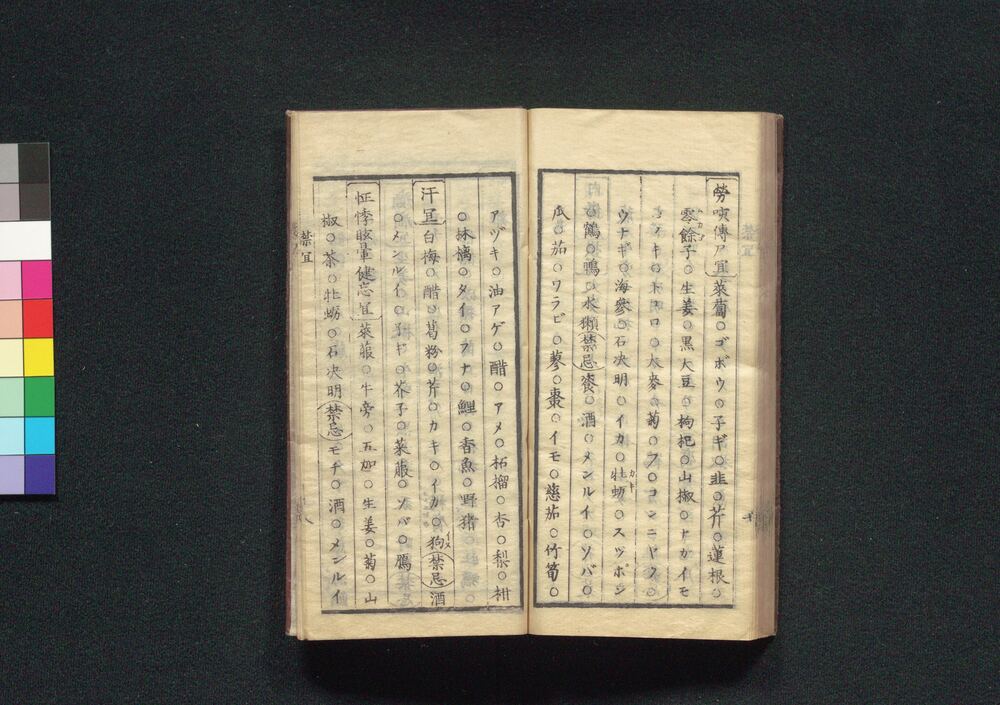 勞嗽傳尸宜萊蔔○ゴボウ○子ギ○韭○芹○蓮根○
零餘子○生姜○黒大豆○枸杷○山椒○ナガイモ
○フキ○トコロ○大麥○菊○フ○コンニヤク○
ウナギ○海參○石决明○イカ○牡蛎カキ○スツポン
○鶴○鴨○水獺禁忌○酒○メンルイ○ソバ○
瓜○茄○ワラビ○蓼○棗○イモ○慈茄○竹筍○
アヅキ○油アゲ○醋○アメ○柘榴○杏○梨○柑
○林檎○タイ○フナ○鯉○香魚○野猪
汗宜白梅○醋○葛粉○芹○カキ○イカ○狗イヌ禁忌酒
○メンルイ○子ギ○芥子○菜菔○ソバ○鴈
怔悸眩暈健忘宜萊菔○牛旁○五加○生姜○菊○山
椒○茶○牡蛎○石决明禁忌モチ○酒○メンルイ
禁宜